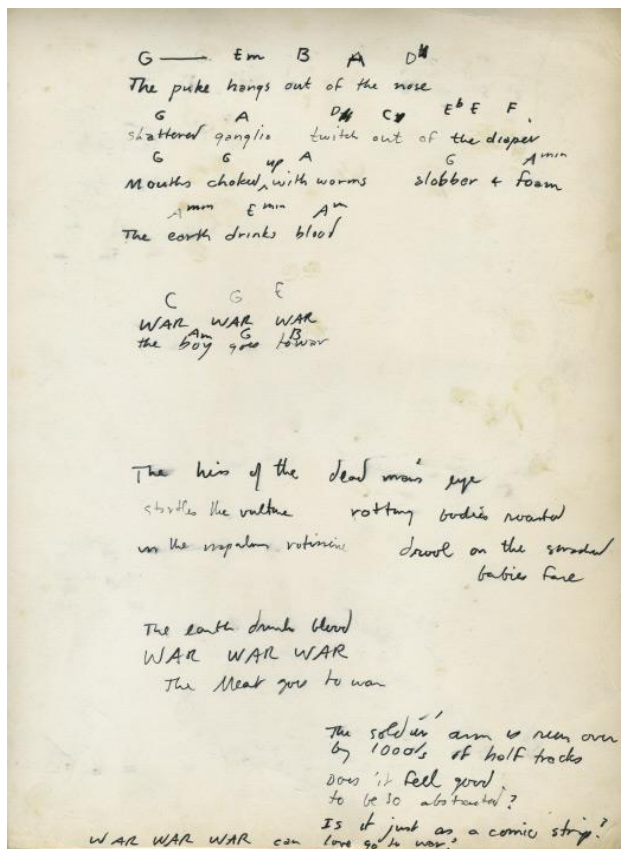 G — Em B A D#
The puke hangs out of the nose
G A D# C# Eb E F
shattered ganglia twitch out of the diaper
G G A G Amin
Mouths choked up with worms slobber & foam
Amin Emin Am
The earth drinks blood
C G E
WAR WAR WAR
Am G B
the boy goes to war
The hiss of the dead man's eye
startles the vulture rotting bodies roasted
in the napalm rotisserie drool on the smashed
babies face
The earth drinks blood
WAR WAR WAR
The Meat goes to war
The soldiers' arm is run over
by 1000's of half tracks
Does it feel good
to be so abstracted?
Is it just as a comic strip?
WAR WAR WAR can love go to war?